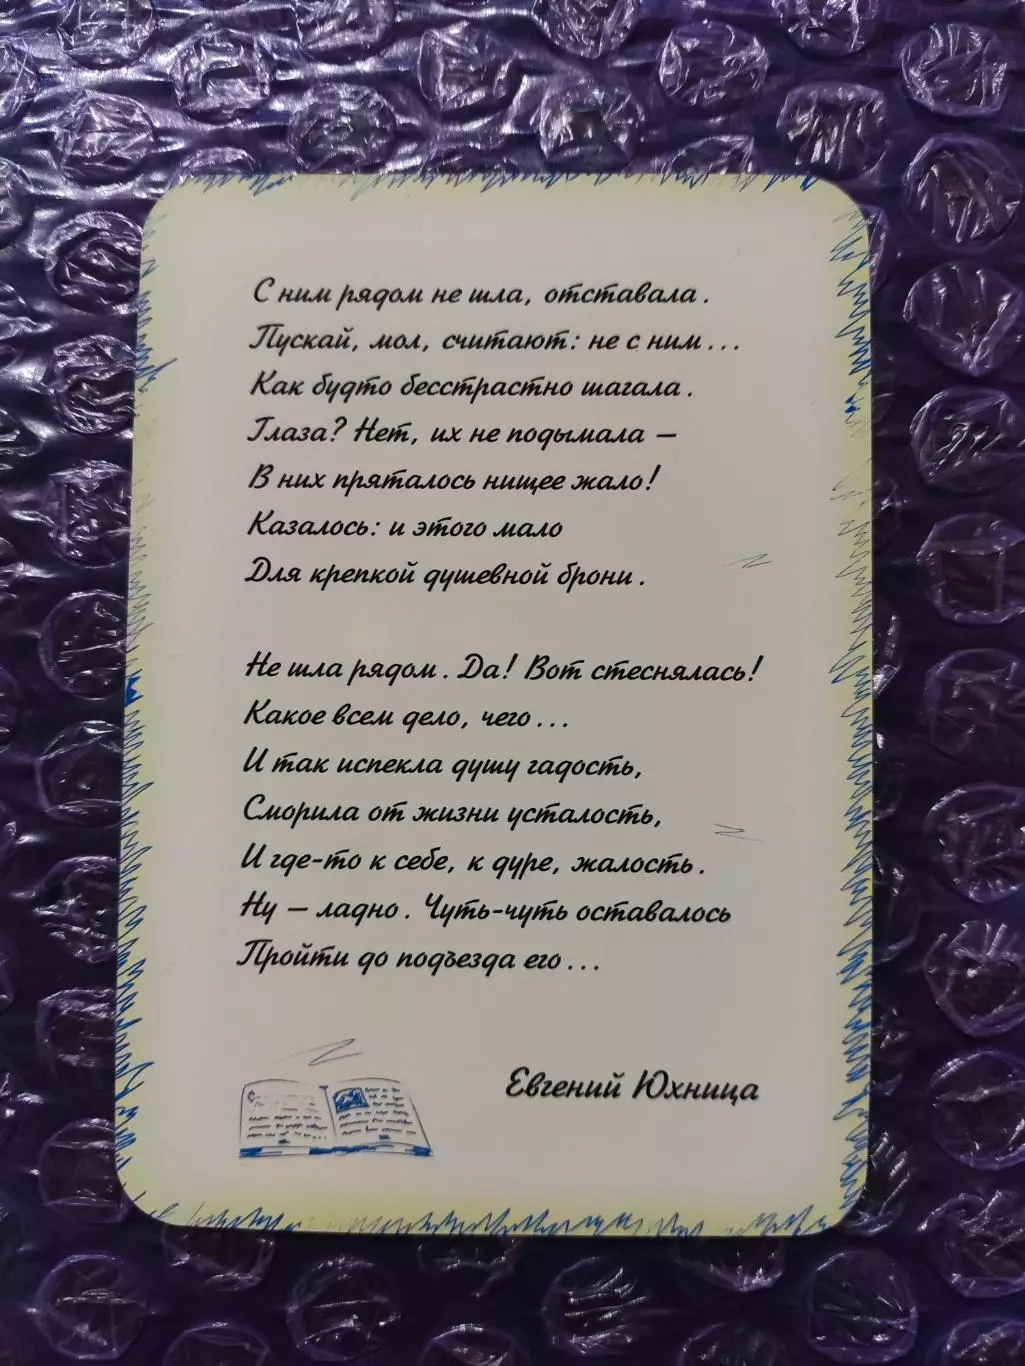 С ним рядом не шла, отставала.
Пускай, мол, считают: не с ним...
Как будто бесстрастно шагала.
Глаза? Нет, их не подымала –
В них пряталось нищее жало!
Казалось: и этого мало
Для крепкой душевной брони.
Не шла рядом. Да! Вот стеснялась!
Какое всем дело, чего...
И так испекла душу гадость,
Сморила от жизни усталость,
И где-то к себе, к дуре, жалость.
Ну – ладно. Чуть-чуть оставалось
Пройти до подъезда его...
Евгений Юхница